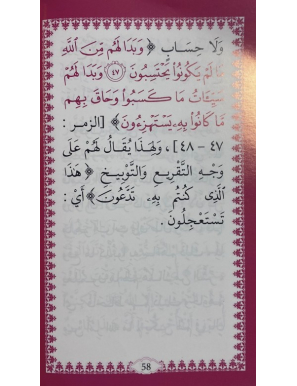 وَلَا حِسَابٍ ﴿وَبَدَا لَهُم مِّنَ اللَّهِ
مَا لَمْ يَكُونُوا يَحْتَسِبُونَ ٤٧ وَبَدَا لَهُمْ
سَيِّئَاتُ مَا كَسَبُوا وَحَاقَ بِهِم
مَّا كَانُوا بِهِ يَسْتَهْزِءُونَ﴾ [الزمر :
٤٧ - ٤٨] ، وَلِهَذَا يُقَالُ لَهُمْ عَلَى
وَجْهِ التَّقْرِيعِ وَالتَّوْبِيخِ ﴿هَذَا
الَّذِي كُنتُم بِهِ تَدَّعُونَ﴾ أَيْ :
تَسْتَعْجِلُونَ .
58